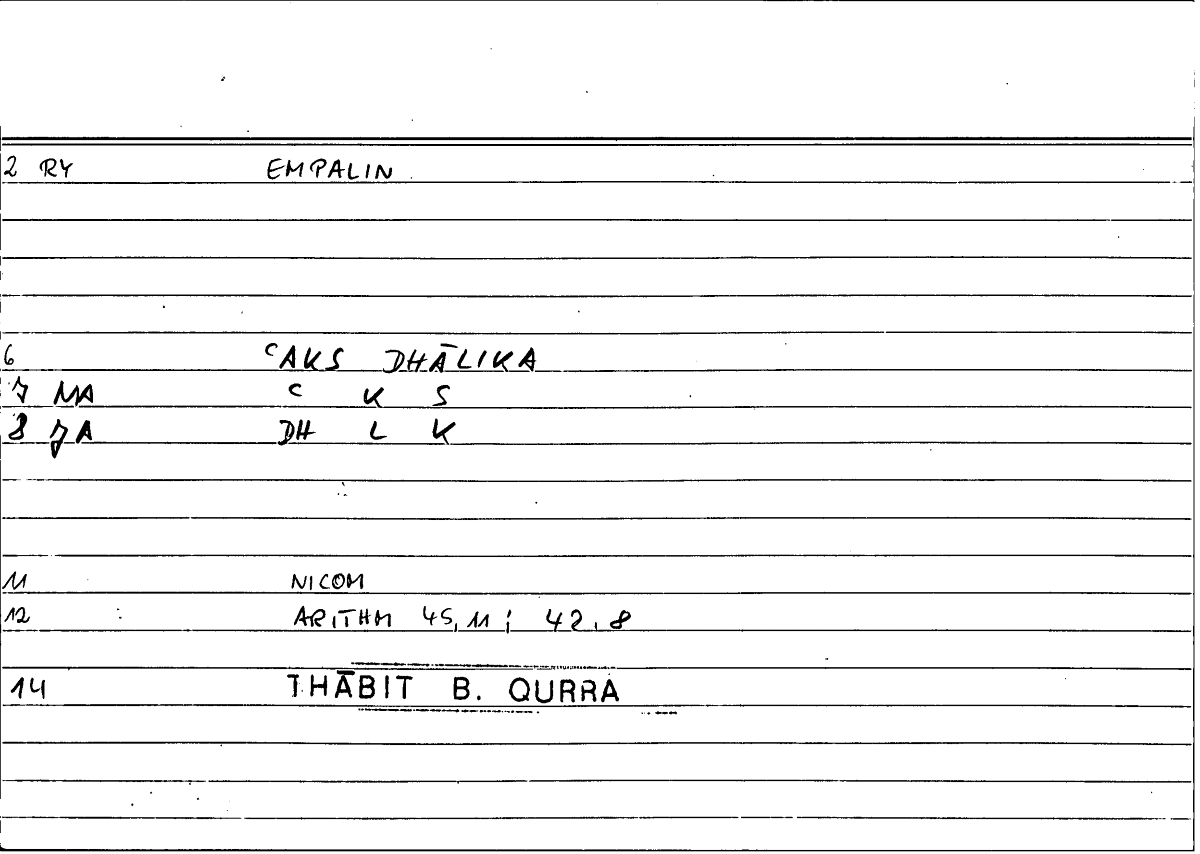 2 RY EMPALIN
6 ʿAKS DHĀLIKA
7 MA ʿ K S
8 JA DH L K
11 NICOM
12 : ARITHM 45,11 ; 42,8
14 THĀBIT B. QURRA